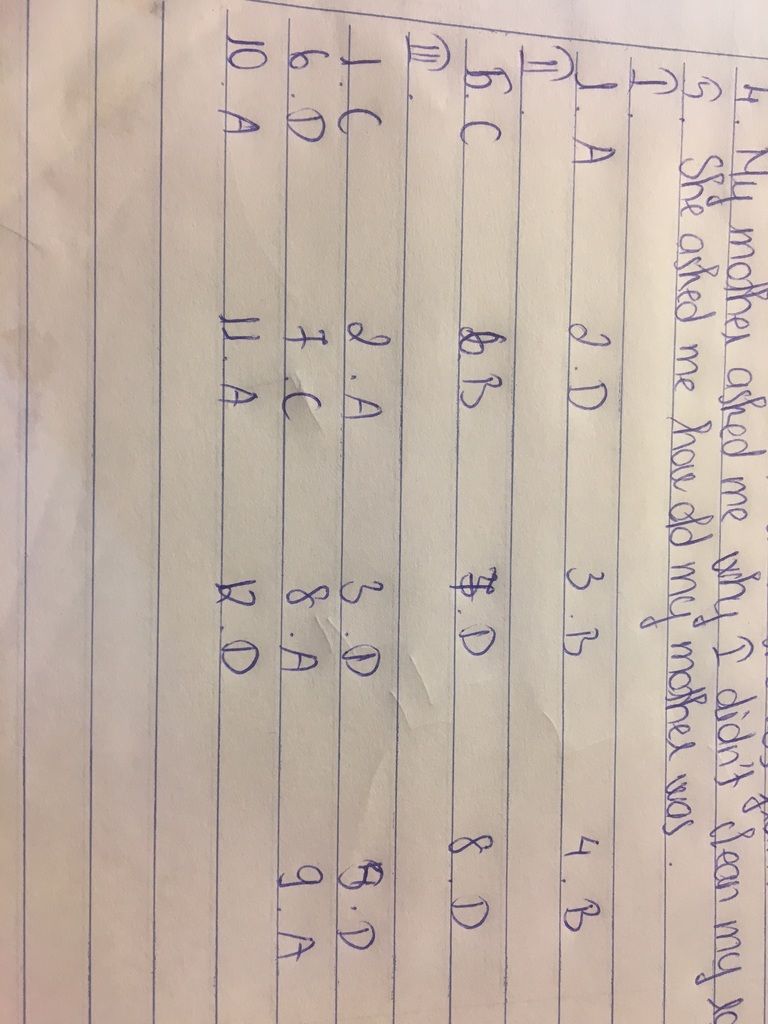 4. My mother asked me why I didn't clean my
5. She asked me how old my mother was.
I.
1.A 2.D 3.B 4.B
II
5.C 6.B 7.D 8.D
III.
1.C 2.A 3.D 5.D
6.D 7.C 8.A 9.A
10.A 11.A 12.D